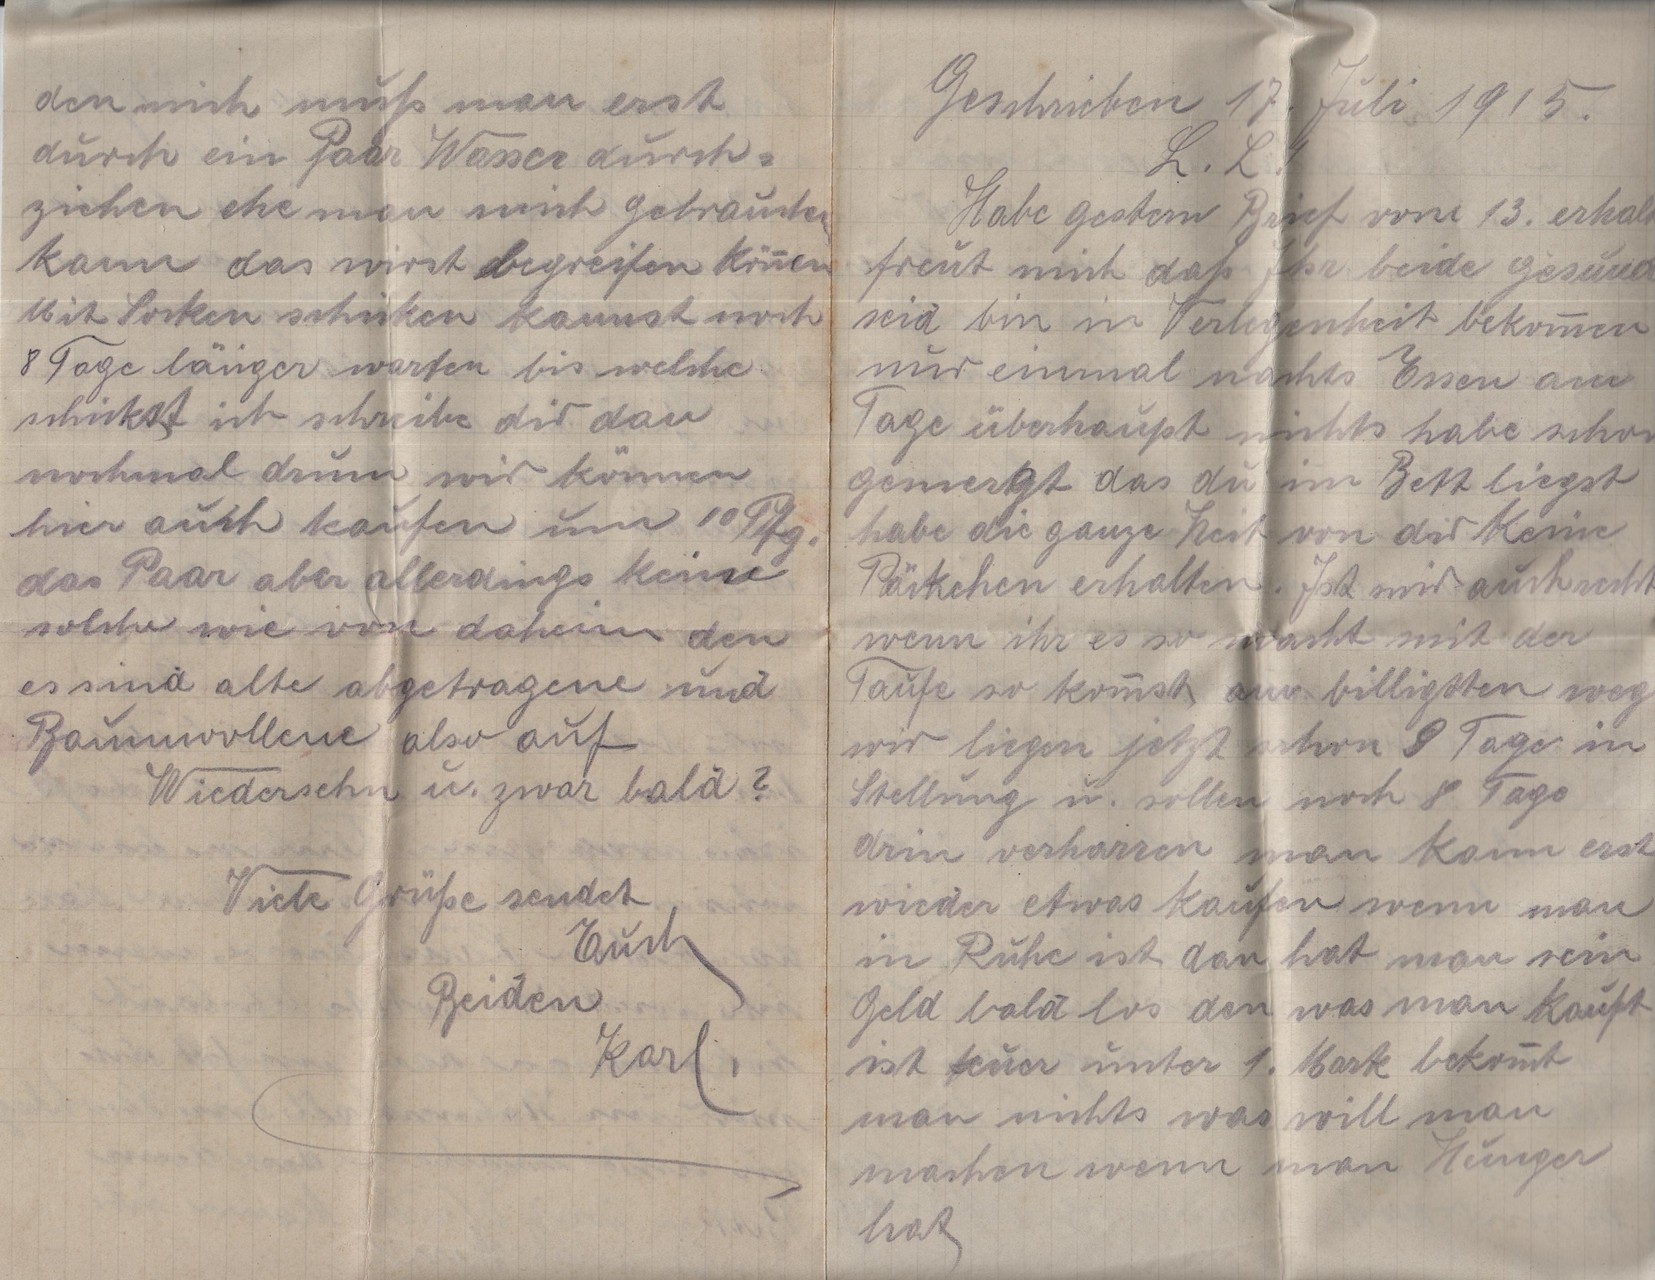 Geschrieben 17. Juli 1915.
L. L.!
Habe gestern Brief vom 13. erhalt
freut mich daß Ihr beide gesund
seid bin in Verlegenheit bekom̅en
nur einmal nachts Essen am
Tage überhaupt nichts habe schon
gemergt das du im Bett liegst
habe die ganze Zeit von dir keine
Päckchen erhalten. Ist mir auch recht
wenn ihr es so macht mit der
Taufe so kom̅st am billigsten weg
wir liegen jetzt schon 8 Tage in
Stellung u. sollen noch 8 Tage
drin verharren man kann erst
wieder etwas kaufen wenn man
in Ruhe ist dan hat man sein
Geld bald los den was man kauft
ist teuer unter 1. Mark bekom̅t
man nichts was will man
machen wenn man Hunger
hat
den mich muß man erst
durch ein Paar Wasser durch=
ziehen ehe man mich gebrauchen
kann das wirst begreifen kön̅en
Mit Socken schicken kannst noch
8 Tage länger warten bis welche
schickst ich schreibe dir dan
nochmal drum wir können
hier auch kaufen um 10 Pfg.
das Paar aber allerdings keine
solche wie von daheim den
es sind alte abgetragene und
Baumwollene also auf
Wiedersehn u. zwar bald?
Viele Grüße sendet
Euch
Beiden
Karl,